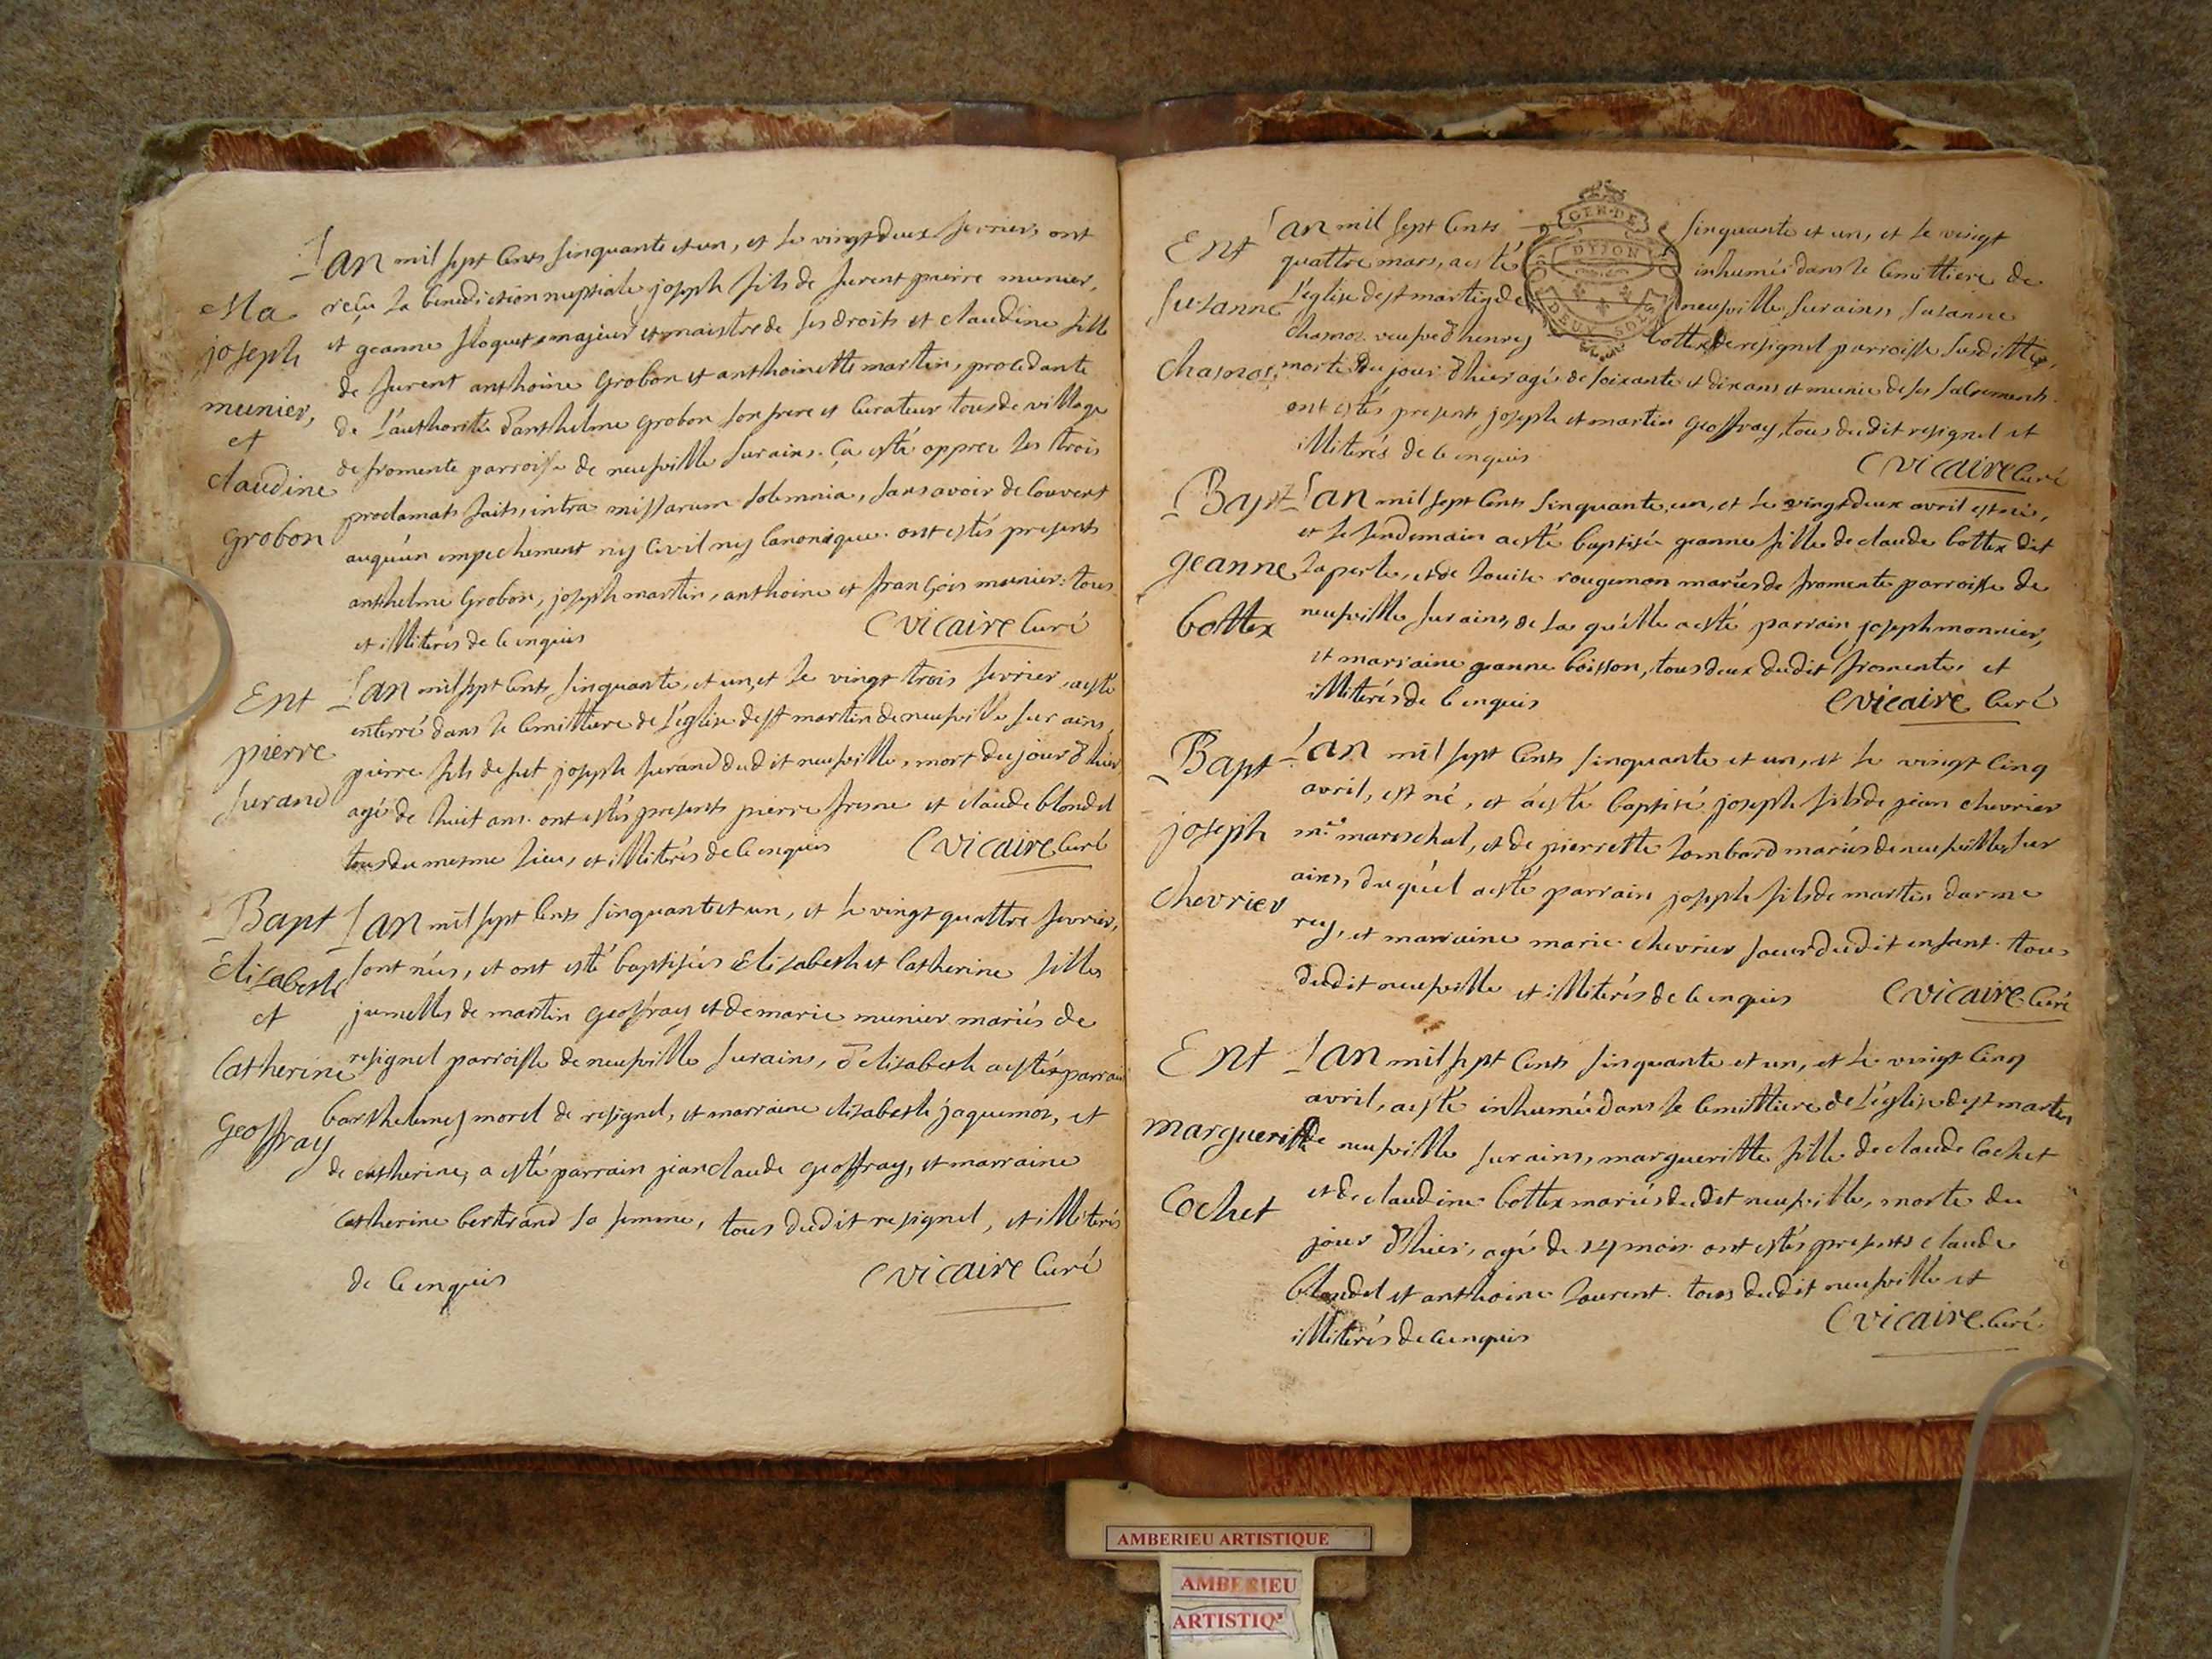 Ma
joseph
munier,
et
claudine
grobon
Lan mil sept cents sinquante et un, et le vingt deux fevrier, ont
reçu la benediction nuptiale joseph fils de furent pierre munier,
et geanne floquet majeur et maistre de ses droits et claudine fille
de furent anthoine grobon et anthoinette martin, procedante
de l'authorité d'anthelme grobon son frere et curateur tous de village
de fromente parroisse de neufville sur ains. Ça esté apprez les trois
proclamats faits, intra missarum solemnia, sans avoir decouvert
auqu'un empechement ny civil ny canonique. ont estés presents
anthelme grobon, joseph martin, anthoine et françois munier. tous
et illiterés de ce enquis
C vicaire Curé
Ent
pierre
furand
Lan mil sept cents sinquante, et un, et le vingt trois fevrier, a esté
enterré dans le cemittiere de l'eglise de st martin de neufville sur ains,
pierre fils de fut joseph furand dudit neufville, mort du jour d'hier
agé de huit ans. ont estés presents pierre fresne et claude blondel
tous du mesme lieu, et illiterés de ce enquis
C vicaire Curé
Bapt
Elizabeth
et
Catherine
geoffray
Lan mil sept cents sinquante et un, et le vingt quattre fevrier,
sont nées, et ont esté baptisées Elizabeth et Catherine filles
jumelles de martin geoffray et de marie munier mariés de
resignel parroisse de neufville sur ains, d'elizabeth a esté parrain
barthelemy morel de resignel, et marraine elizabeth jaquemoz, et
de catherine, a esté parrain jean claude geoffray, et marraine
catherine bertrand sa femme, tous dudit resignel, et illiterés
de ce enquis
C vicaire Curé
GEN. DE
DYJON
DEUX SOLS
Ent
Suzanne
Chamoz,
Lan mil sept cents sinquante et un, et le vingt
quattre mars, a esté inhumée dans le cemittiere de
l'eglise de st martin de neufville sur ains, suzanne
chamoz veufve d'henry bottex de resignel parroisse susditte,
morte du jour d'hier agée de soixante et dix ans, et munie de ses sacrements.
ont estés presents joseph et martin geoffray, tous dudit resignel et
illiterés de ce enquis
C vicaire Curé
Bapt
geanne
bottex
Lan mil sept cents sinquante, un, et le vingt deux avril est né,
et le lendemain a esté baptisée geanne fille de claude bottex dit
laperle, et de louise rougemon mariés de fromente parroisse de
neufville sur ains, de la qu'elle a esté parrain joseph monnier,
et marraine geanne boisson, tous deux dudit fromente, et
illiterés de ce enquis
C vicaire Curé
Bapt
joseph
chevrier
Lan mil sept cents sinquante et un, et le vingt cinq
avril, est né, et a esté baptisé joseph fils de jean chevrier
mre mareschal, et de pierrette lombard mariés de neufville sur
ains, du qu'el a esté parrain joseph fils de martin darme
rey, et marraine marie chevrier soeur dudit enfant. tous
dudit neufville et illiterés de ce enquis
C vicaire Curé
Ent
margueritte
Cochet
Lan mil sept cents sinquante et un, et le vingt cinq
avril, a esté inhumée dans le cemittiere de l'eglise de st martin
de neufville sur ains, margueritte fille de claude cochet
et de claudine bottex mariés dudit neufville, morte du
jour d'hier, agé de 14 mois. ont estés presents claude
blondel et anthoine laurent. tous dudit neufville et
illiterés de ce enquis
C vicaire Curé
AMBERIEU ARTISTIQUE
AMBERIEU
ARTISTIQ